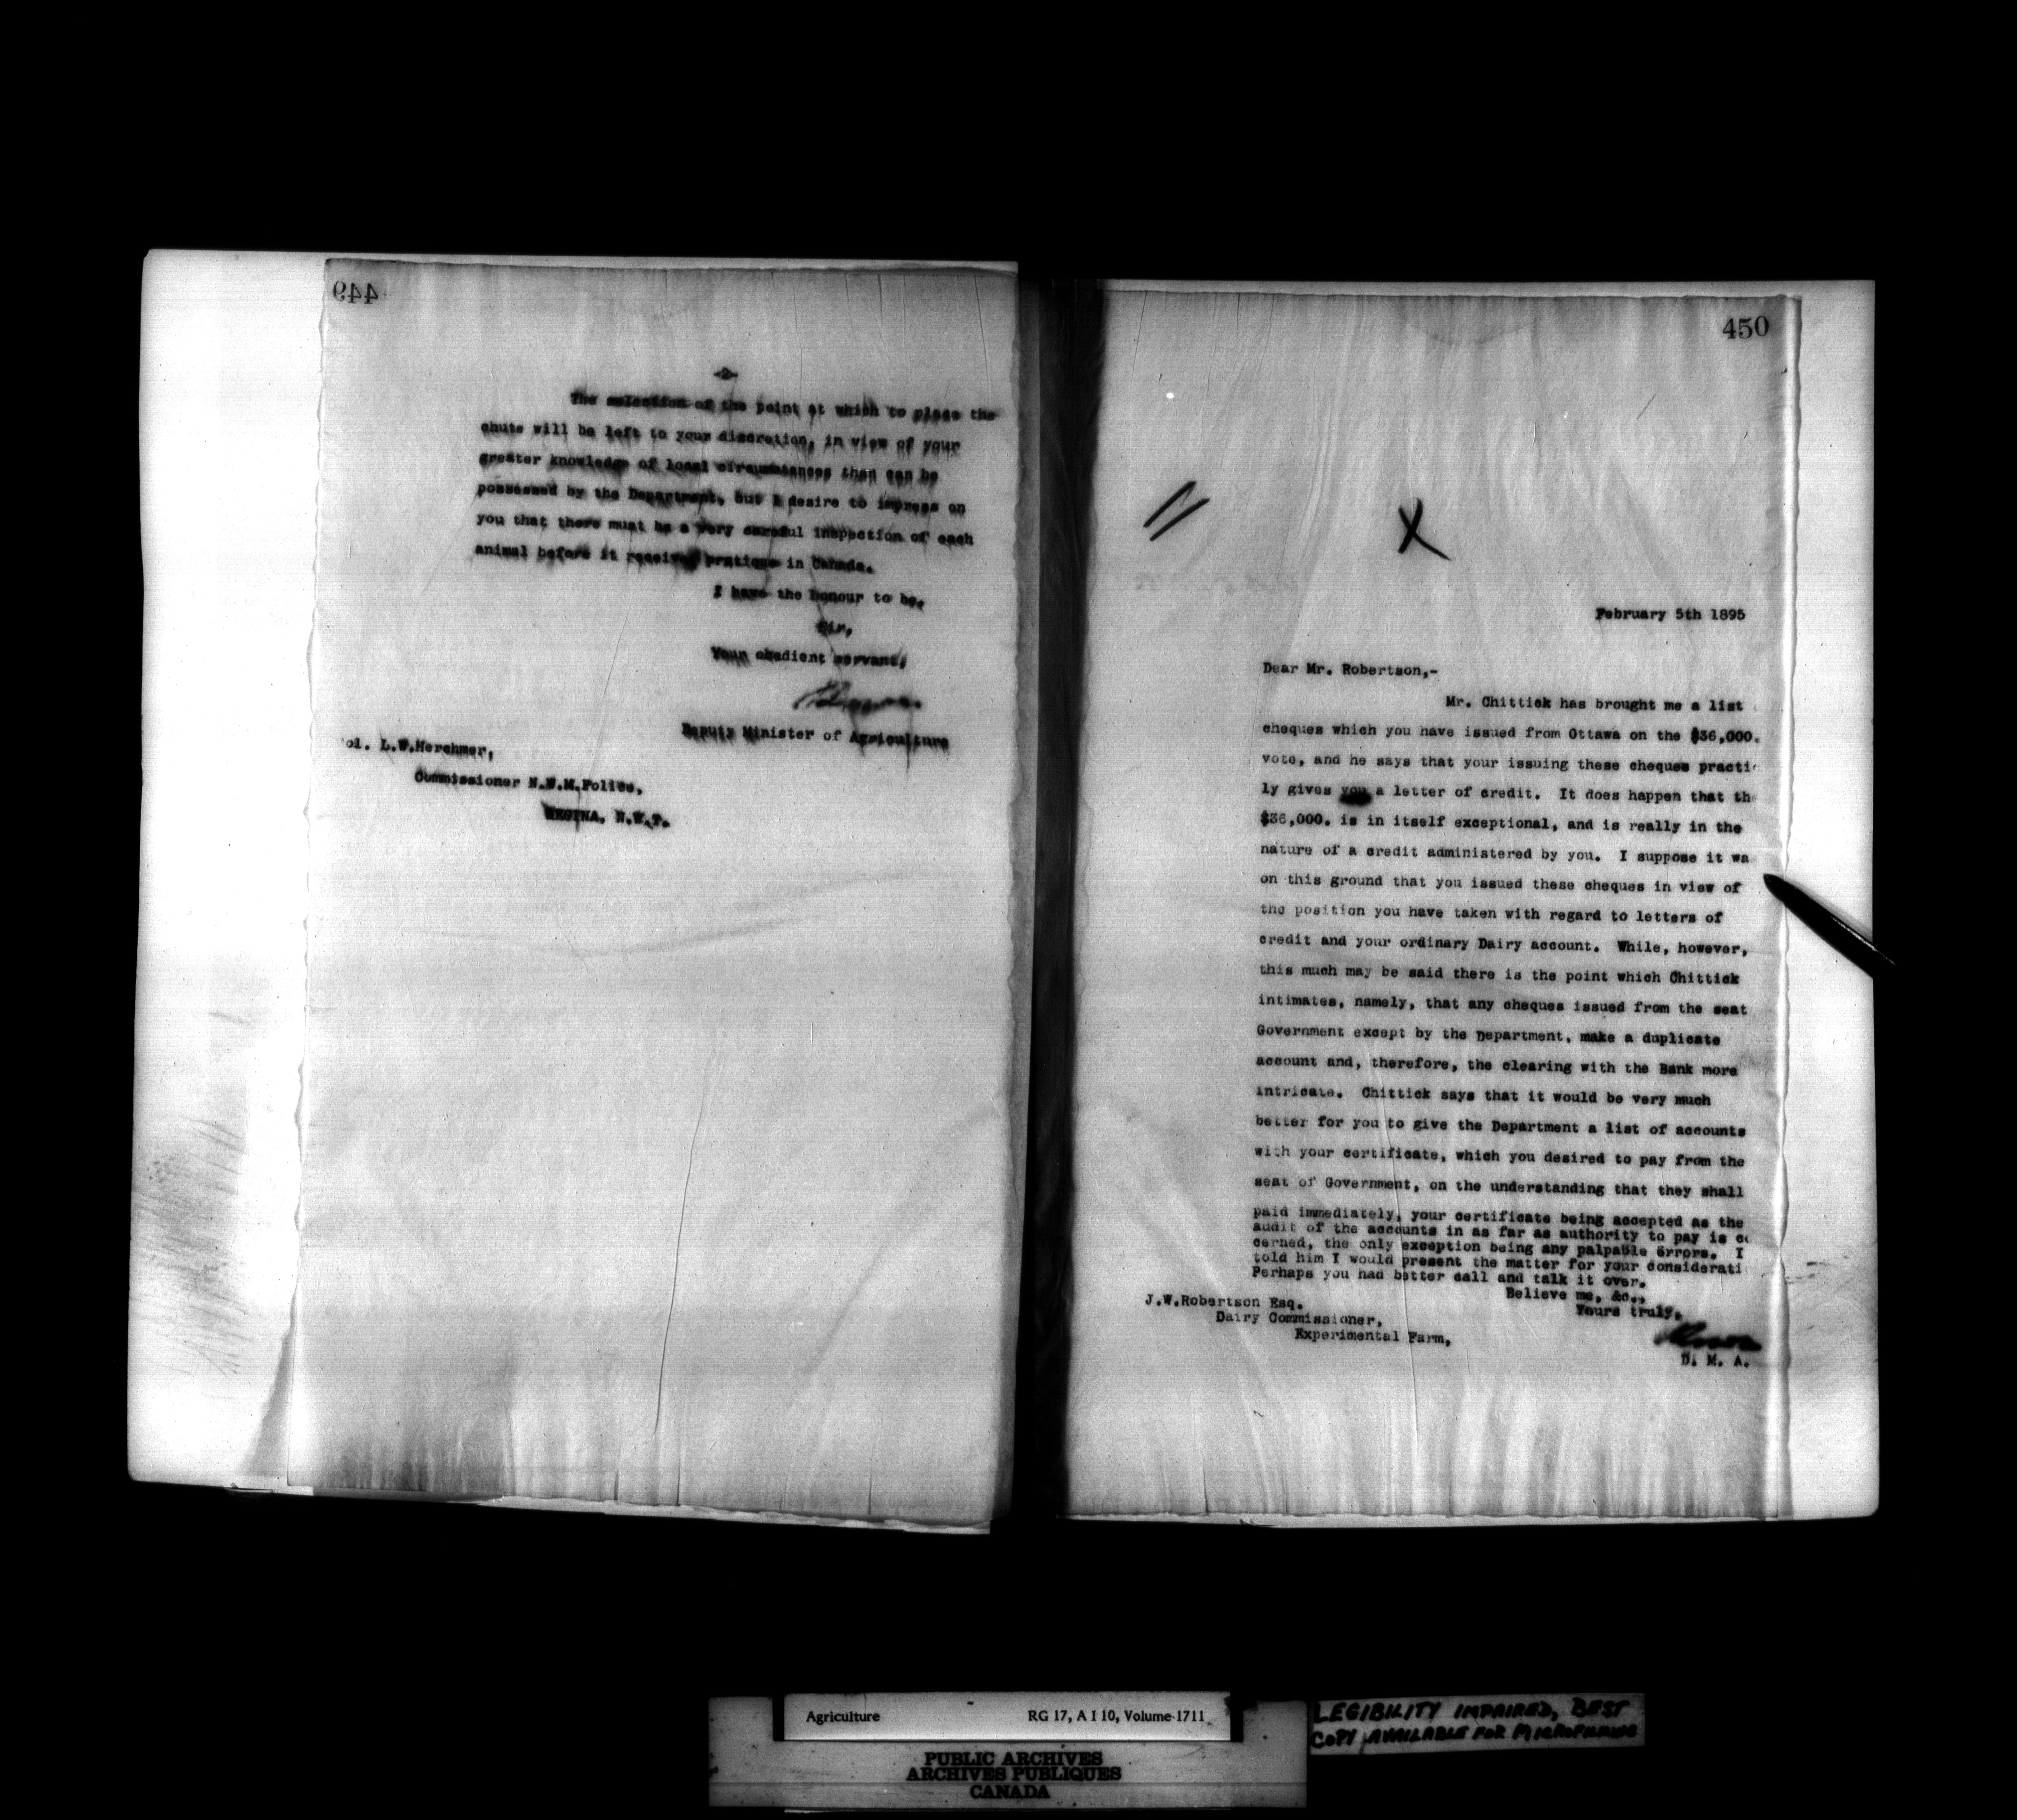 449
-2-
The selection of the point at which to place the
chute will be left to your discretion, in view of your
greater knowledge of local circumstances than can be
possessed by the Department, but I desire to impress on
you that there must be a very careful inspection of each
animal before it receives pratique in Canada.
I have the honour to be,
Sir,
Your obedient servant,
Deputy Minister of Agriculture
ol. L.W.Herchmer,
Commissioner N.W.M.Police,
REGINA, N.W.T.
450
X
February 5th 1895
Dear Mr. Robertson,-
Mr. Chittick has brought me a list
cheques which you have issued from Ottawa on the $36,000.
vote, and he says that your issuing these cheques practi
ly gives you a letter of credit. It does happen that th
$36,000. is in itself exceptional, and is really in the
nature of a credit administered by you. I suppose it wa
on this ground that you issued these cheques in view of
the position you have taken with regard to letters of
credit and your ordinary Dairy account. While, however,
this much may be said there is the point which Chittick
intimates, namely, that any cheques issued from the seat
Government except by the Department, make a duplicate
account and, therefore, the clearing with the Bank more
intricate. Chittick says that it would be very much
better for you to give the Department a list of accounts
with your certificate, which you desired to pay from the
seat of Government, on the understanding that they shall
paid immediately, your certificate being accepted as the
audit of the accounts in as far as authority to pay is co
cerned, the only exception being any palpable errors. I
told him I would present the matter for your considerati
Perhaps you had better call and talk it over.
Believe me, &c.,
Yours truly,
D. M. A.
J.W.Robertson Esq.
Dairy Commissioner,
Experimental Farm,
Agriculture RG 17, A I 10, Volume 1711
PUBLIC ARCHIVES
ARCHIVES PUBLIQUES
CANADA
LEGIBILITY IMPAIRED, BEST
COPY AVAILABLE FOR MICROFILMING